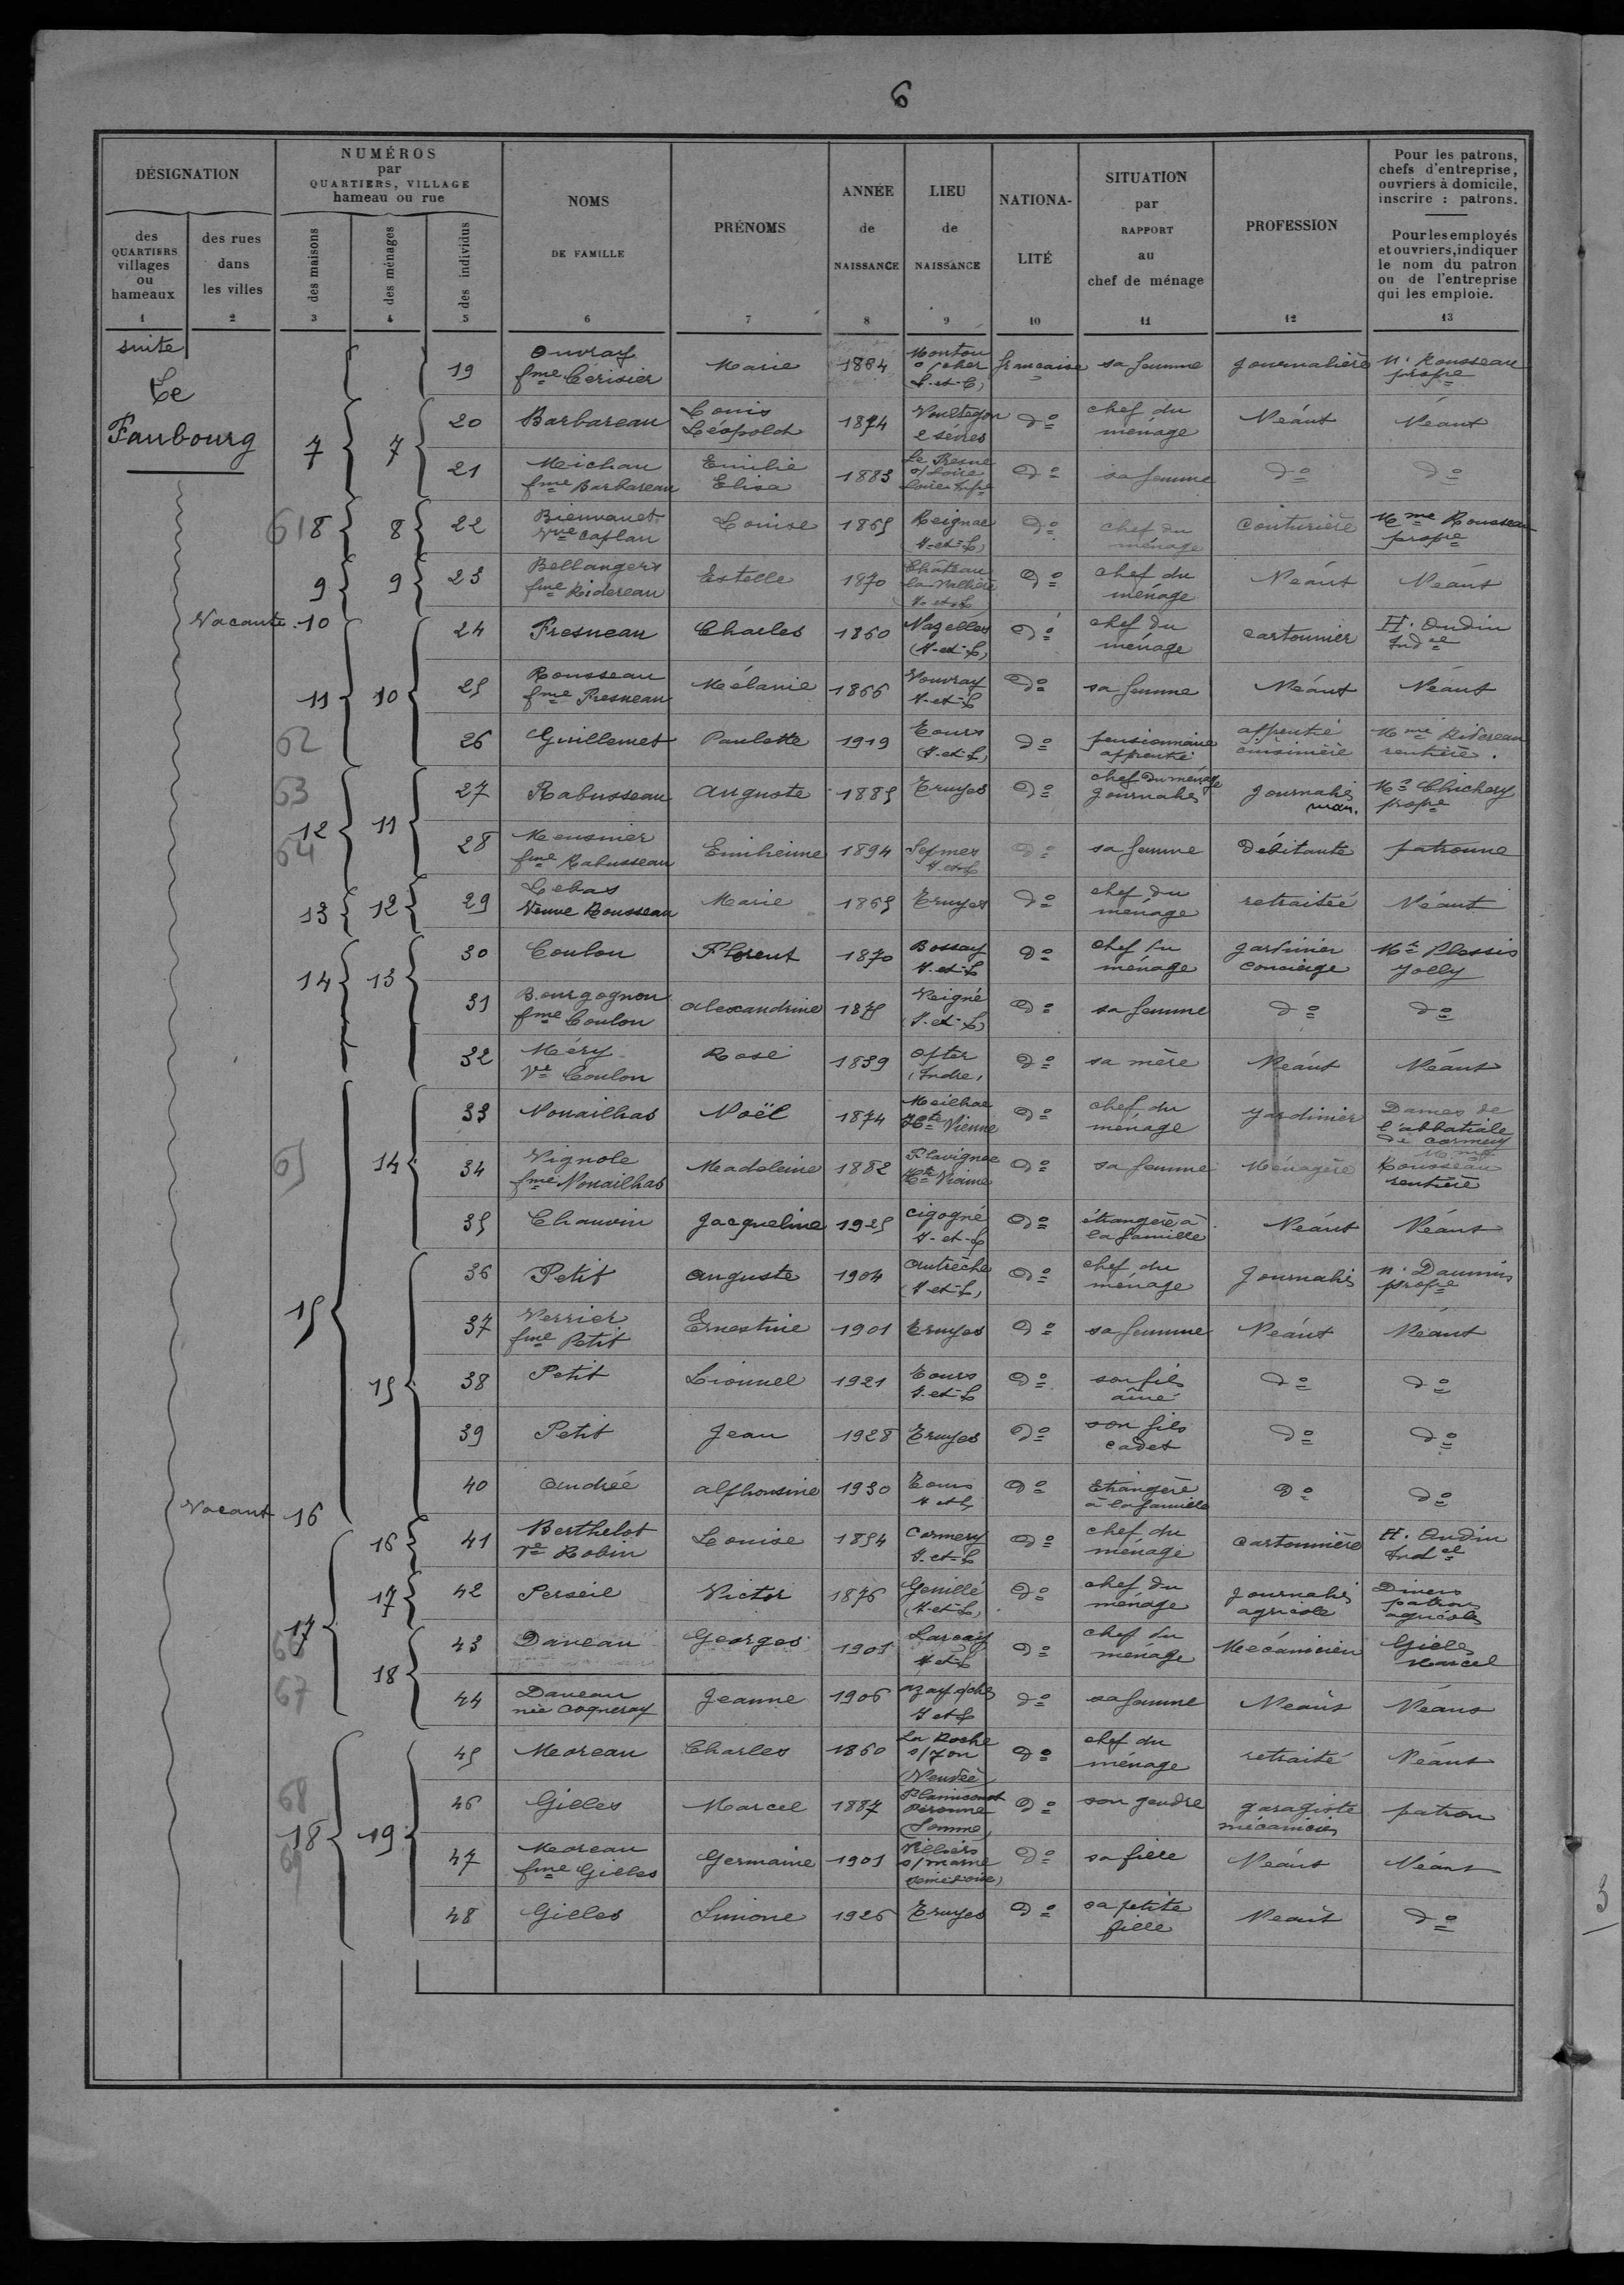 6
DÉSIGNATION
NUMÉROS
par
QUARTIERS, VILLAGE
hameau ou rue
NOMS
DE FAMILLE
PRÉNOMS
ANNÉE
de
NAISSANCE
LIEU
de
NAISSANCE
NATIONA-
LITÉ
SITUATION
par
RAPPORT
au
chef de ménage
PROFESSION
Pour les patrons,
chefs d'entreprise,
ouvriers à domicile,
inscrire : patrons.
Pour les employés
et ouvriers, indiquer
le nom du patron
ou de l'entreprise
qui les emploie.
des
QUARTIERS
villages
ou
hameaux
des rues
dans
les villes
des maisons
des ménages
des individus
1 2 3 4 5 6 7 8 9 10 11 12 13
suite
Le
Faubourg
19 Ouvray fme Cerisier Marie 1884 Montou s/cher L-et-C française sa femme journalière N. Rousseau propre
7 7 20 Barbareau Louis Léopold 1874 Voultegon 2 sèvres do chef du ménage Néant Néant
21 Meichau fme Barbareau Emilie Elisa 1883 Le Fresne s/Loire Loire Infre do sa femme do do
61 8 8 22 Bienvanet Vve Caplan Louise 1865 Reignac I-et-L do chef du ménage Couturière Mme Rousseau propre
9 9 23 Bellangers fme Ridereau Estelle 1870 Château la Vallière I-et-L do chef du ménage Néant Néant
Vacante 10
11 10 24 Fresneau Charles 1860 Nazelles (I-et-L) do chef du ménage cartonnier H. Oudin Indel
25 Rousseau fme Fresneau Mélanie 1866 Vouvray I-et-L do sa femme Néant Néant
62 26 Guillemet Paulette 1919 Tours (I-et-L) do pensionnaire apprentie apprentie cuisinière Mme Ridereau rentière.
63 12 11 27 Rabusseau Auguste 1885 Truyes do chef du ménage Journalier Journalier man. Mr Chichery propre
64 28 Meusnier fme Rabusseau Emilienne 1894 Sepmes I-et-L do sa femme Débitante patronne
13 12 29 Lebas Veuve Rousseau Marie 1865 Truyes do chef du ménage retraitée Néant
14 13 30 Coulon Florent 1870 Bossay I-et-L do chef du ménage Jardinier Concierge Mr Plessis Jolly
31 Bourgognon fme Coulon Alexandrine 1875 Veigné (I-et-L) do sa femme do do
32 Méry Ve Coulon Rose 1839 (Indre) do sa mère Néant Néant
15 14 33 Nouailhas Noël 1874 Meilhac Hte Vienne do chef du ménage Jardinier Dames de l'abbatiale de Cormery
65 34 Vignole fme Nouailhas Madeleine 1882 Flavignac Hte Vienne do sa femme Ménagère Mme Rousseau rentière
35 Chauvin Jacqueline 1925 Cigogné I-et-L do étrangère à la famille Néant Néant
15 36 Petit Auguste 1904 Autrèche (I-et-L) do chef du ménage Journalier N. Daumin propre
37 Verrier fme Petit Ernestine 1901 Truyes do sa femme Néant Néant
38 Petit Lionnel 1921 Tours I-et-L do son fils aîné do do
39 Petit Jean 1928 Truyes do son fils cadet do do
40 Andreé Alphonsine 1930 Tours I et L do Etrangère à la famille do do
Vacant 16
17 16 41 Berthelot Ve Robin Louise 1854 Cormery I-et-L do chef du ménage Cartonnière H. Oudin Indel
17 42 Perseil Victor 1876 Genillé (I-et-L) do chef du ménage Journalier agricole Divers patrons agricoles
66 18 43 Daveau Georges 1901 Larcay I-et-L do chef du ménage Mécanicien Gilles Marcel
67 44 Daveau née Cogneray Jeanne 1906 Azay s/cher I et L do sa femme Néant Néant
18 19 45 Moreau Charles 1860 La Roche s/Yon (Vendée) do chef du ménage retraité Néant
68 46 Gilles Marcel 1887 Péronne (Somme) do son gendre garagiste mécanicien patron
69 47 Moreau fme Gilles Germaine 1901 Villiers s/marne (seine et oise) do sa fille Néant Néant
48 Gilles Simone 1926 Truyes do sa petite fille Néant do
3